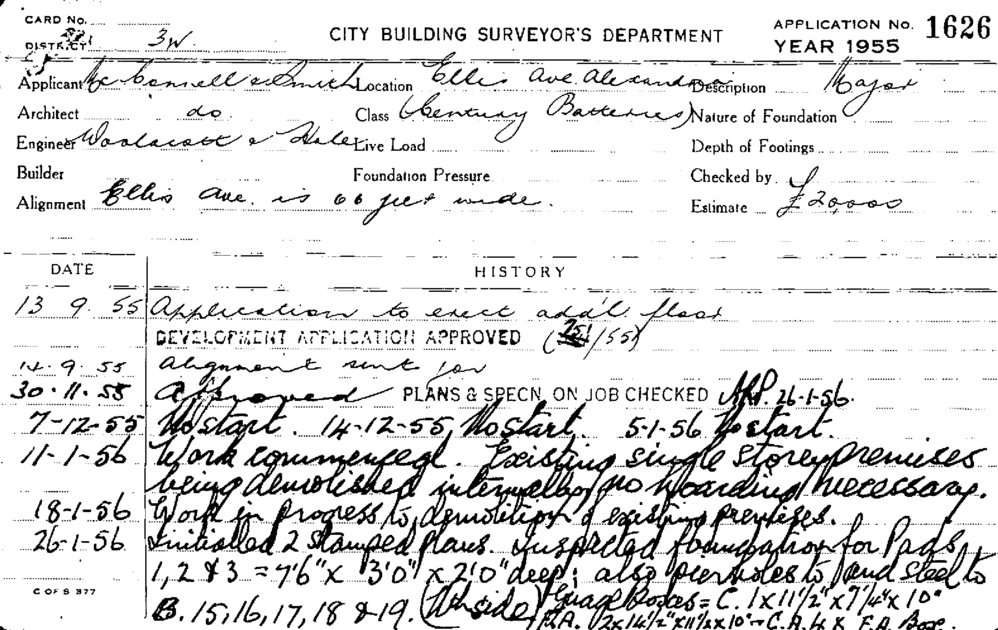 CARD No.
DISTRICT 3W.
CITY BUILDING SURVEYOR'S DEPARTMENT
APPLICATION No. 1626
YEAR 1955
Applicant McConnell & Smith Location Ellis Ave. Alexandria Description Major
Architect do Class (Century Batteries) Nature of Foundation
Engineer Woolacott & Hale Live Load Depth of Footings
Builder Foundation Pressure Checked by
Alignment Ellis Ave. is 66 feet wide. Estimate £20,000
DATE HISTORY
13 9. 55 Application to erect add'l floor
DEVELOPMENT APPLICATION APPROVED ( /55)
14.9.55 Alignment sent for
30.11.55 Approved PLANS & SPECN. ON JOB CHECKED 26-1-56.
7-12-55 No start. 14-12-55 No start. 5-1-56 No start.
11-1-56 Work commenced. Existing single storey premises
being demolished internally, no hoarding necessary.
18-1-56 Work in progress to demolition of existing premises.
26-1-56 Initialled 2 stamped plans. Inspected foundation for Pads
1, 2 & 3 = 7'6" x 3'0" x 2'0" deep; also pierholes to and steel to
C OF S 377
B. 15, 16, 17, 18 & 19. (Nth side) Guage Boxes = C. 1 x 11 1/2" x 7 1/4" x 10"
F.A. 2 x 14 1/2" x 11 1/2 x 10" C.A. 4 x F.A. Box.